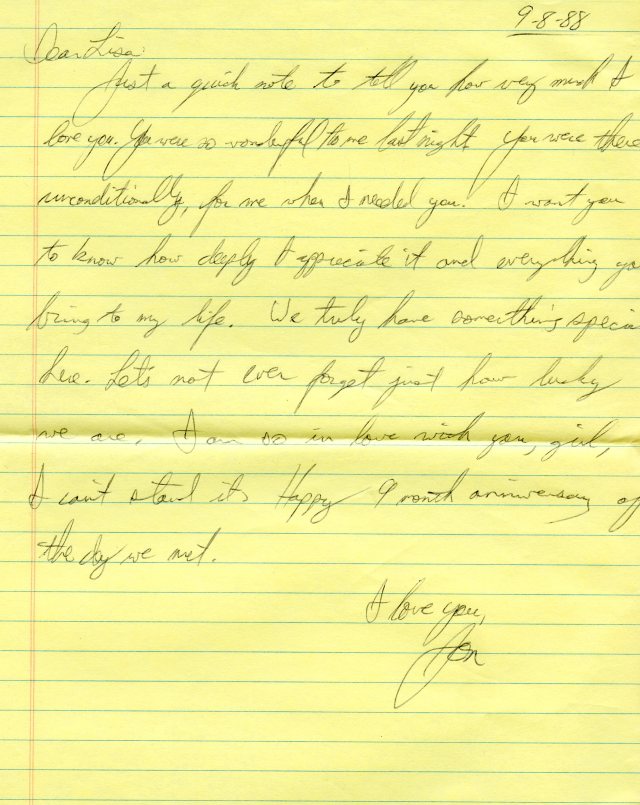 9-8-88
Dear Lisa:
Just a quick note to tell you how very much I
love you. You were so wonderful to me last night. You were there
unconditionally, for me when I needed you. I want you
to know how deeply I appreciate it and everything you
bring to my life. We truly have something special
here. Let's not ever forget just how lucky
we are. I am so in love with you, girl,
I can't stand it. Happy 9 month anniversary of
the day we met.
I love you,
Jon